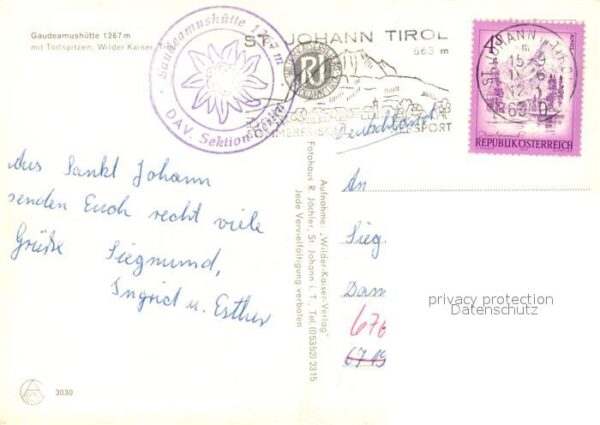 Gaudeamushütte 1267 m
mit Törlspitzen, Wilder Kaiser, Tirol
Gaudeamushütte 1267 m
DAV. Sektion Berlin
ST. JOHANN TIROL
663 m
SOMMERFRISCHE SPORT
4
ST. JOHANN IN TIROL
REPUBLIK ÖSTERREICH
Deutschland
Aus Sankt Johann
senden Euch recht viele
Grüße Siegmund,
Ingrid u. Esther
Aufnahme „Wilder-Kaiser-Verlag"
Fotohaus R. Jöchler, St. Johann i. T., Tel. (05352) 2315
Jede Vervielfältigung verboten
An
Sieg
Dam
676
6719
privacy protection
Datenschutz
3030